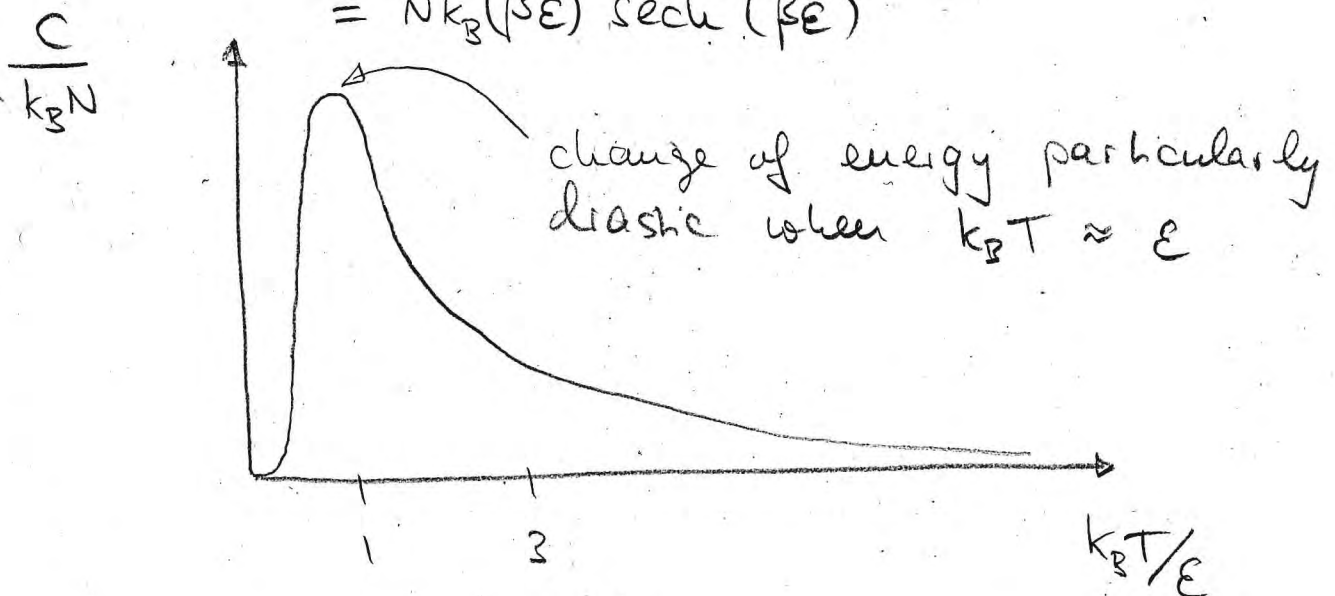 = Nk_B(βε) sech (βε)
C
k_BN
change of energy particularly
drastic when k_BT ≈ ε
1 3
k_BT/ε